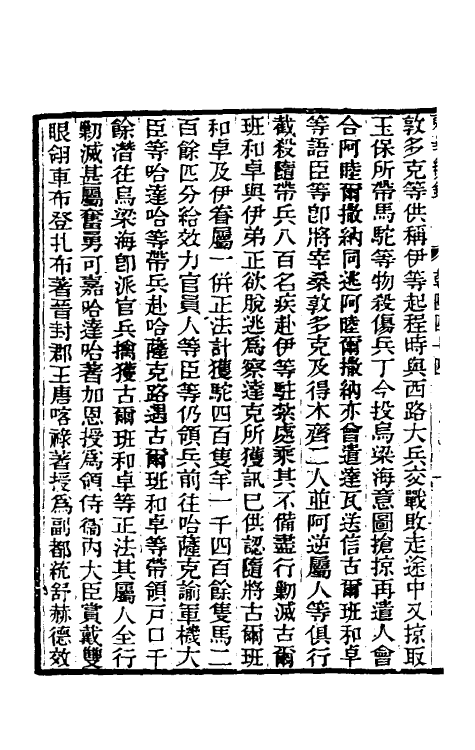 敦多克等供稱伊等起程時與西路大兵交戰敗走途中又掠取
玉保所帶馬駝等物殺傷兵丁今投烏梁海意圖搶掠再遣人會
合阿睦爾撒納同逃阿睦爾撒納亦曾遣達瓦送信古爾班和卓
等語臣等卽將宰桑敦多克及得木齊二人並阿逆屬人等俱行
截殺隨帶兵八百名疾赴伊等駐紮處乘其不備盡行勦滅古爾
班和卓與伊弟正欲脫逃爲察達克所獲訊巳供認隨將古爾班
和卓及伊眷屬一併正法計獲駝四百隻羊一千四百餘隻馬二
百餘匹分給效力官員人等臣等仍領兵前往哈薩克諭軍機大
臣等哈達哈等帶兵赴哈薩克路遇古爾班和卓等帶領戶口千
餘潛往烏梁海卽派官兵擒獲古爾班和卓等正法其屬人全行
勦滅甚屬奮勇可嘉哈達哈著加恩授爲領侍衞內大臣賞戴雙
眼翎車布登扎布著晉封郡王唐喀祿著授爲副都統舒赫德效